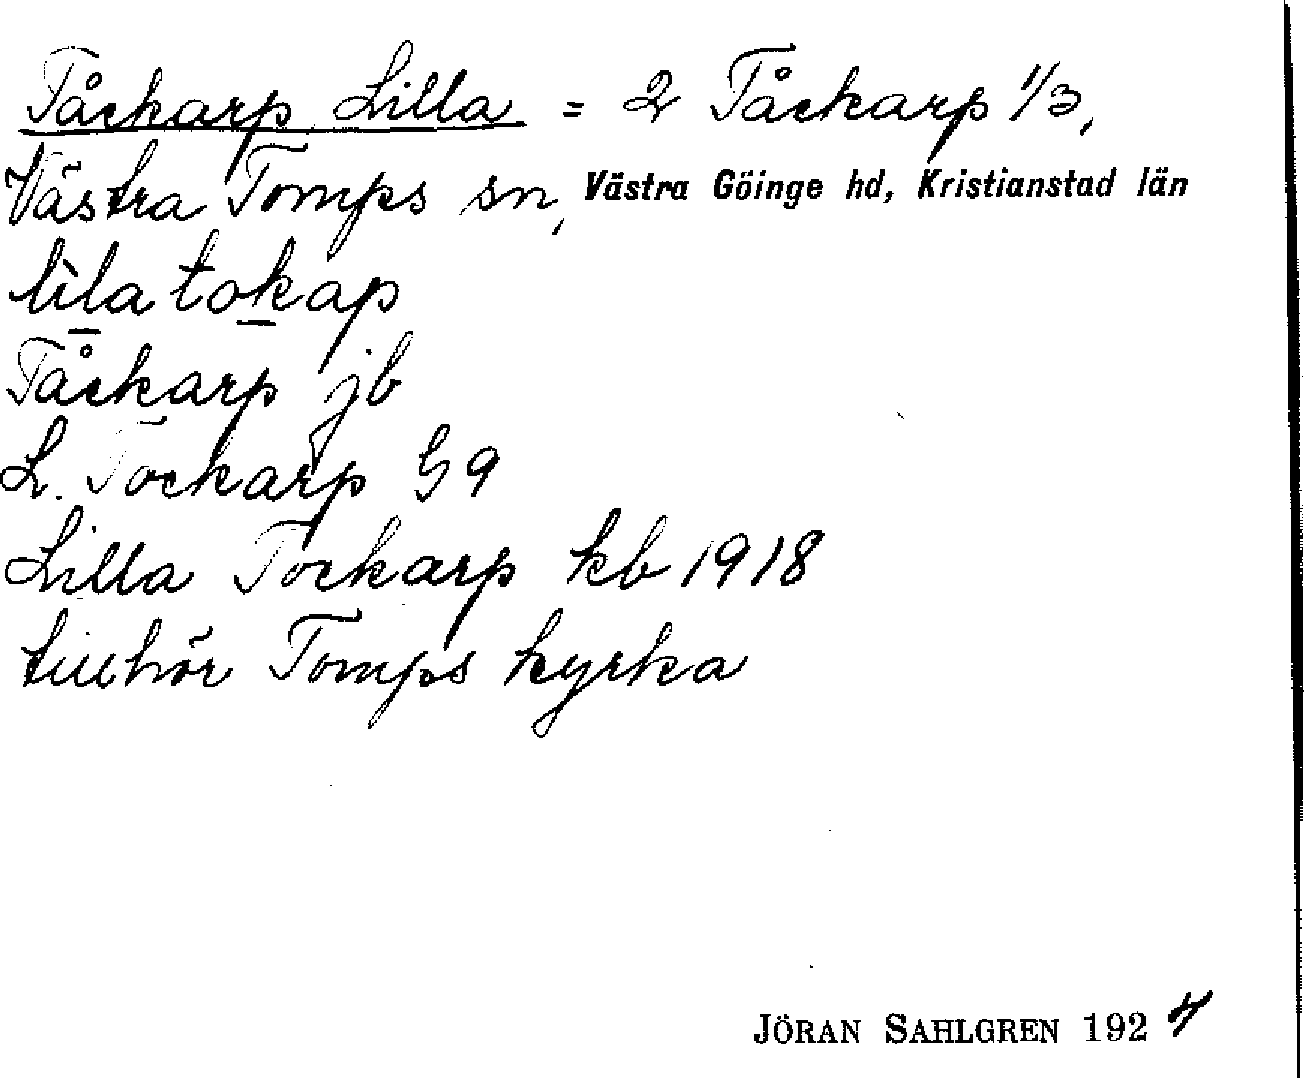 Tåckarp, Lilla = 2 Tåckarp 1/3,
Västra Torups sn, Västra Göinge hd, Kristianstad län
lìla tokap
Tåckarp jb
L. Tockarp G 9
Lilla Tockarp kb 1918
tillhör Torups kyrka
JÖRAN SAHLGREN 1924